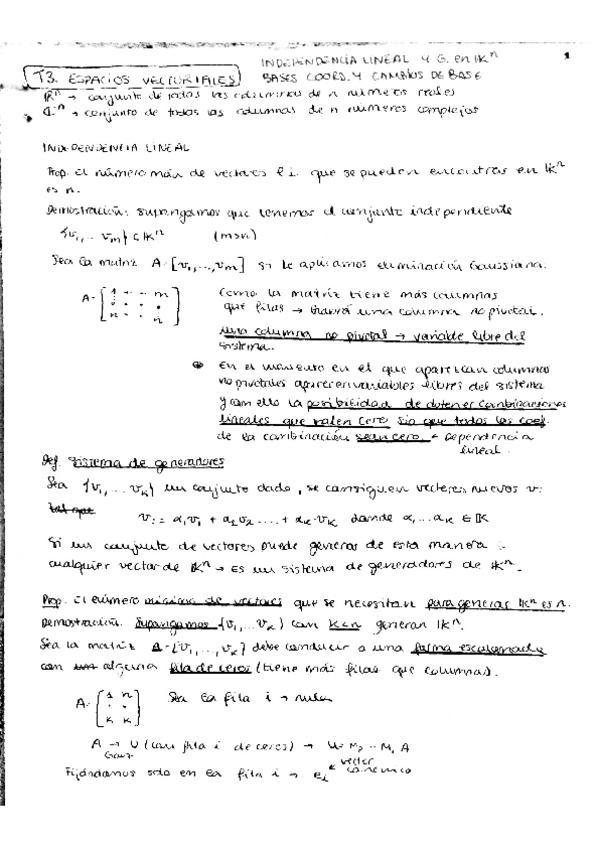 INDEPENDENCIA LINEAL Y G. en IKⁿ 1
T3. ESPACIOS VECTORIALES BASES COORD. Y CAMBIOS DE BASE
IRⁿ → conjunto de todas las columnas de n números reales
ℂⁿ → conjunto de todas las columnas de n números complejos
INDEPENDENCIA LINEAL
Prop. El número máx de vectores l.i. que se pueden encontrar en IKⁿ
es n.
Demostración: Supongamos que tenemos el conjunto independiente
{v₁, ... vm} ⊂ IKⁿ (m>n)
Sea la matriz A=[v₁,...,vm] si le aplicamos eliminación Gaussiana.
Como la matriz tiene más columnas
que filas → habrá una columna no pivotal.
una columna no pivotal → variable libre del
sistema.
En el momento en el que aparezcan columnas
no pivotales aparecen variables libres del sistema
y con ello la posibilidad de obtener combinaciones
lineales que valen cero sin que todos los coef.
de la combinación sean cero = Dependencia
lineal.
Def. Sistema de generadores
Sea {v₁, ... vk} un conjunto dado, se consiguen vectores nuevos v:
tal que
v = α₁v₁ + α₂v₂ .... + αk·vk donde α₁...αk ∈ IK
Si un conjunto de vectores puede generar de esta manera
cualquier vector de IKⁿ → Es un sistema de generadores de IKⁿ.
Prop. El número mínimo de vectores que se necesitan para generar IKⁿ es n.
Demostración. Supongamos {v₁, ... vk} con k<n generan IKⁿ.
Sea la matriz A=[v₁, ..., vk] debe conducir a una forma escalonada
con alguna fila de ceros (tiene más filas que columnas).
Sea la fila i → nula
A → U (con fila i de ceros) → U = Mp ... M₁ A
Gauss
Fijándonos solo en la fila i → eᵢ vector canónico